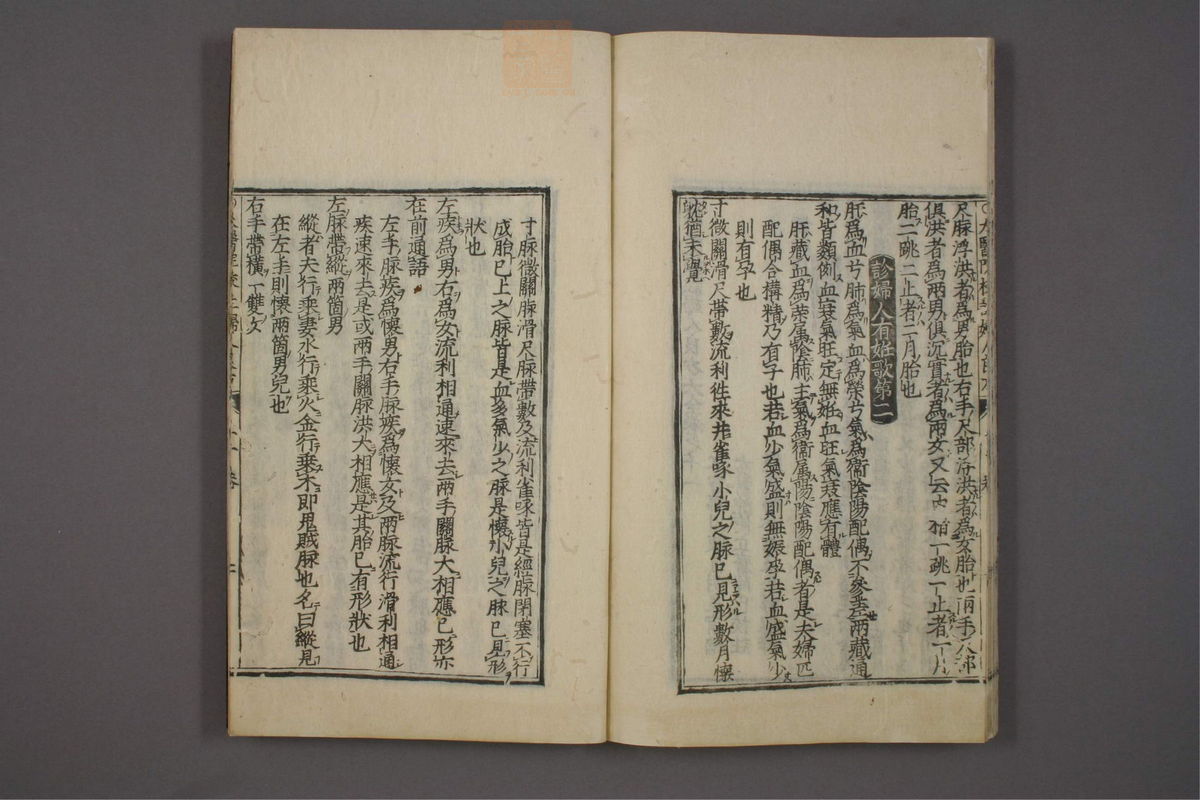 尺脉浮洪者爲男胎也右手尺部浮洪者爲女胎也兩手尺部
俱洪者爲兩男俱沉實者爲兩女又云中指一跳一止者一月
胎二跳二止者二月胎也
診婦人有姙歌第二
肝爲血兮肺爲氣血爲榮兮氣爲衞陰陽配偶不參差兩藏通
和皆類例血衰氣旺定無姙血旺氣衰應有體
肝藏血爲榮属陰肺主氣爲衞属陽陰陽配偶者是夫婦匹
配偶合構精乃有子也若血少氣盛則無娠孕若血盛氣少
則有孕也
寸微關滑尺帶數流利徃來并雀啄小兒之脉已見形數月懷
躭猶未覺
寸脉微關脉滑尺脉帶數及流利雀啄皆是經脉閉塞不行
成胎已上之脉皆是血多氣少之脉是懷小兒之脉已見形
狀也
左疾爲男右爲女流利相通速來去兩手關脉大相應已形亦
在前通語
左手脉疾爲懷男右手脉疾爲懷女及兩脉流行滑利相通
疾速來去是或兩手關脉洪大相應是其胎已有形狀也
左脉帶縱兩箇男
縱者夫行乘妻水行乘火金行乘木即鬼賊脉也名曰縱見
在左手則懷兩箇男兒也
右手帶橫一雙女